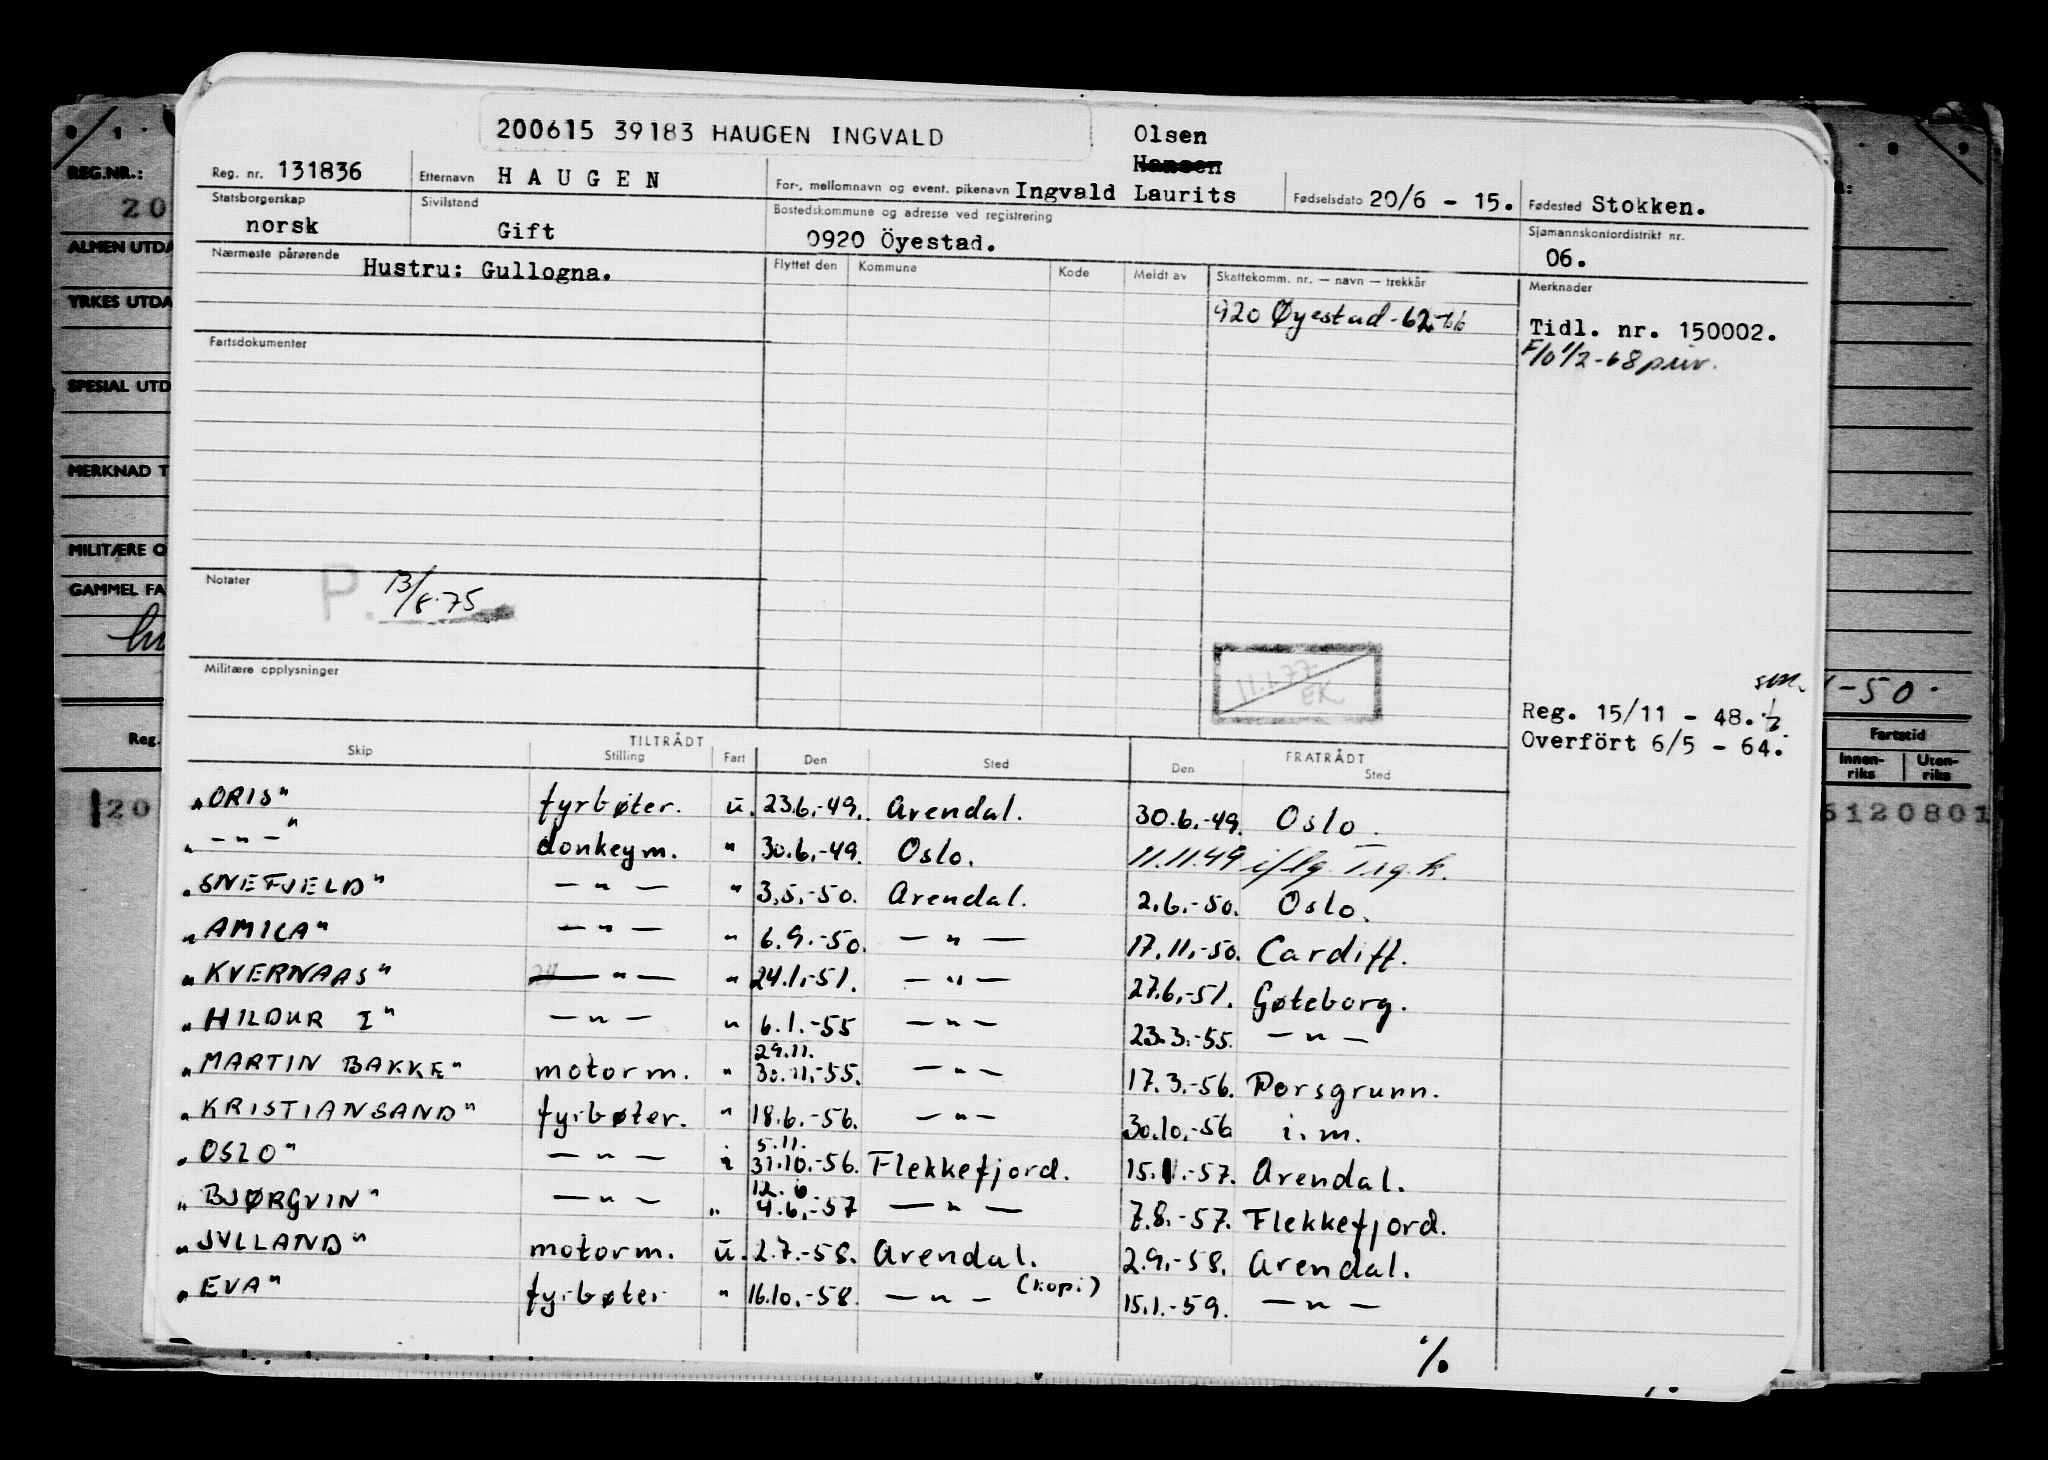 200615 39183 HAUGEN INGVALD
Olsen
Hansen
Reg. nr. 131836 Etternavn HAUGEN For-, mellomnavn og event. pikenavn Ingvald Laurits Fødselsdato 20/6 - 15. Fødested Stokken.
Statsborgerskap norsk Sivilstand Gift Bostedskommune og adresse ved registrering 0920 Öyestad. Sjømannskontordistrikt nr. 06.
Nærmeste pårørende Hustru: Gullogna. Flyttet den Kommune Kode Meldt av Skattekomm. nr. — navn — trekkår Merknader
920 Øyestad - 62-66 Tidl. nr. 150002.
F/o 1/2-68 priv.
Fartsdokumenter
Notater P. 13/8-75
Militære opplysninger
11.1.77 EK
Reg. 15/11 - 48.
Overfört 6/5 - 64.
TILTRÅDT FRATRÅDT
Skip Stilling Fart Den Sted Den Sted
"ORIS" fyrbøter. u. 23.6.-49. Arendal. 30.6.-49. Oslo.
" — " — " donkeym. " 30.6.-49. Oslo. 11.11.49 iflg.
"SNEFJELD" — " — " 3.5.-50. Arendal. 2.6.-50. Oslo.
"AMICA" — " — " 6.9.-50. — " — 17.11.-50. Cardiff.
"KVERNAAS" — " — " 24.1.-51. — " — 27.6.-51. Gøteborg.
"HILDUR I" — " — " 6.1.-55 — " — 23.3.-55. — " —
29.11.
"MARTIN BAKKE" motorm. " 30.11.-55. — " — 17.3.-56. Porsgrunn.
"KRISTIANSAND" fyrbøter. " 18.6.-56. — " — 30.10.-56 i.m.
5.11.
"OSLO" — " — i 31.10.-56. Flekkefjord. 15.1.-57. Arendal.
12.6
"BJØRGVIN" — " — " 4.6.-57 — " — 7.8.-57. Flekkefjord.
"JYLLAND" motorm. u. 2.7.-58. Arendal. 2.9.-58. Arendal.
"EVA" fyrbøter " 16.10.-58. — " — (kopi) 15.1.-59. — " —
%
REG.NR.:
20
ALMEN UTDA
YRKES UTDA
SPESIAL UTD
MERKNAD T
MILITÆRE O
GAMMEL FA
Reg.
20
-50.
Fartstid
Innen-riks Uten-riks
6120801